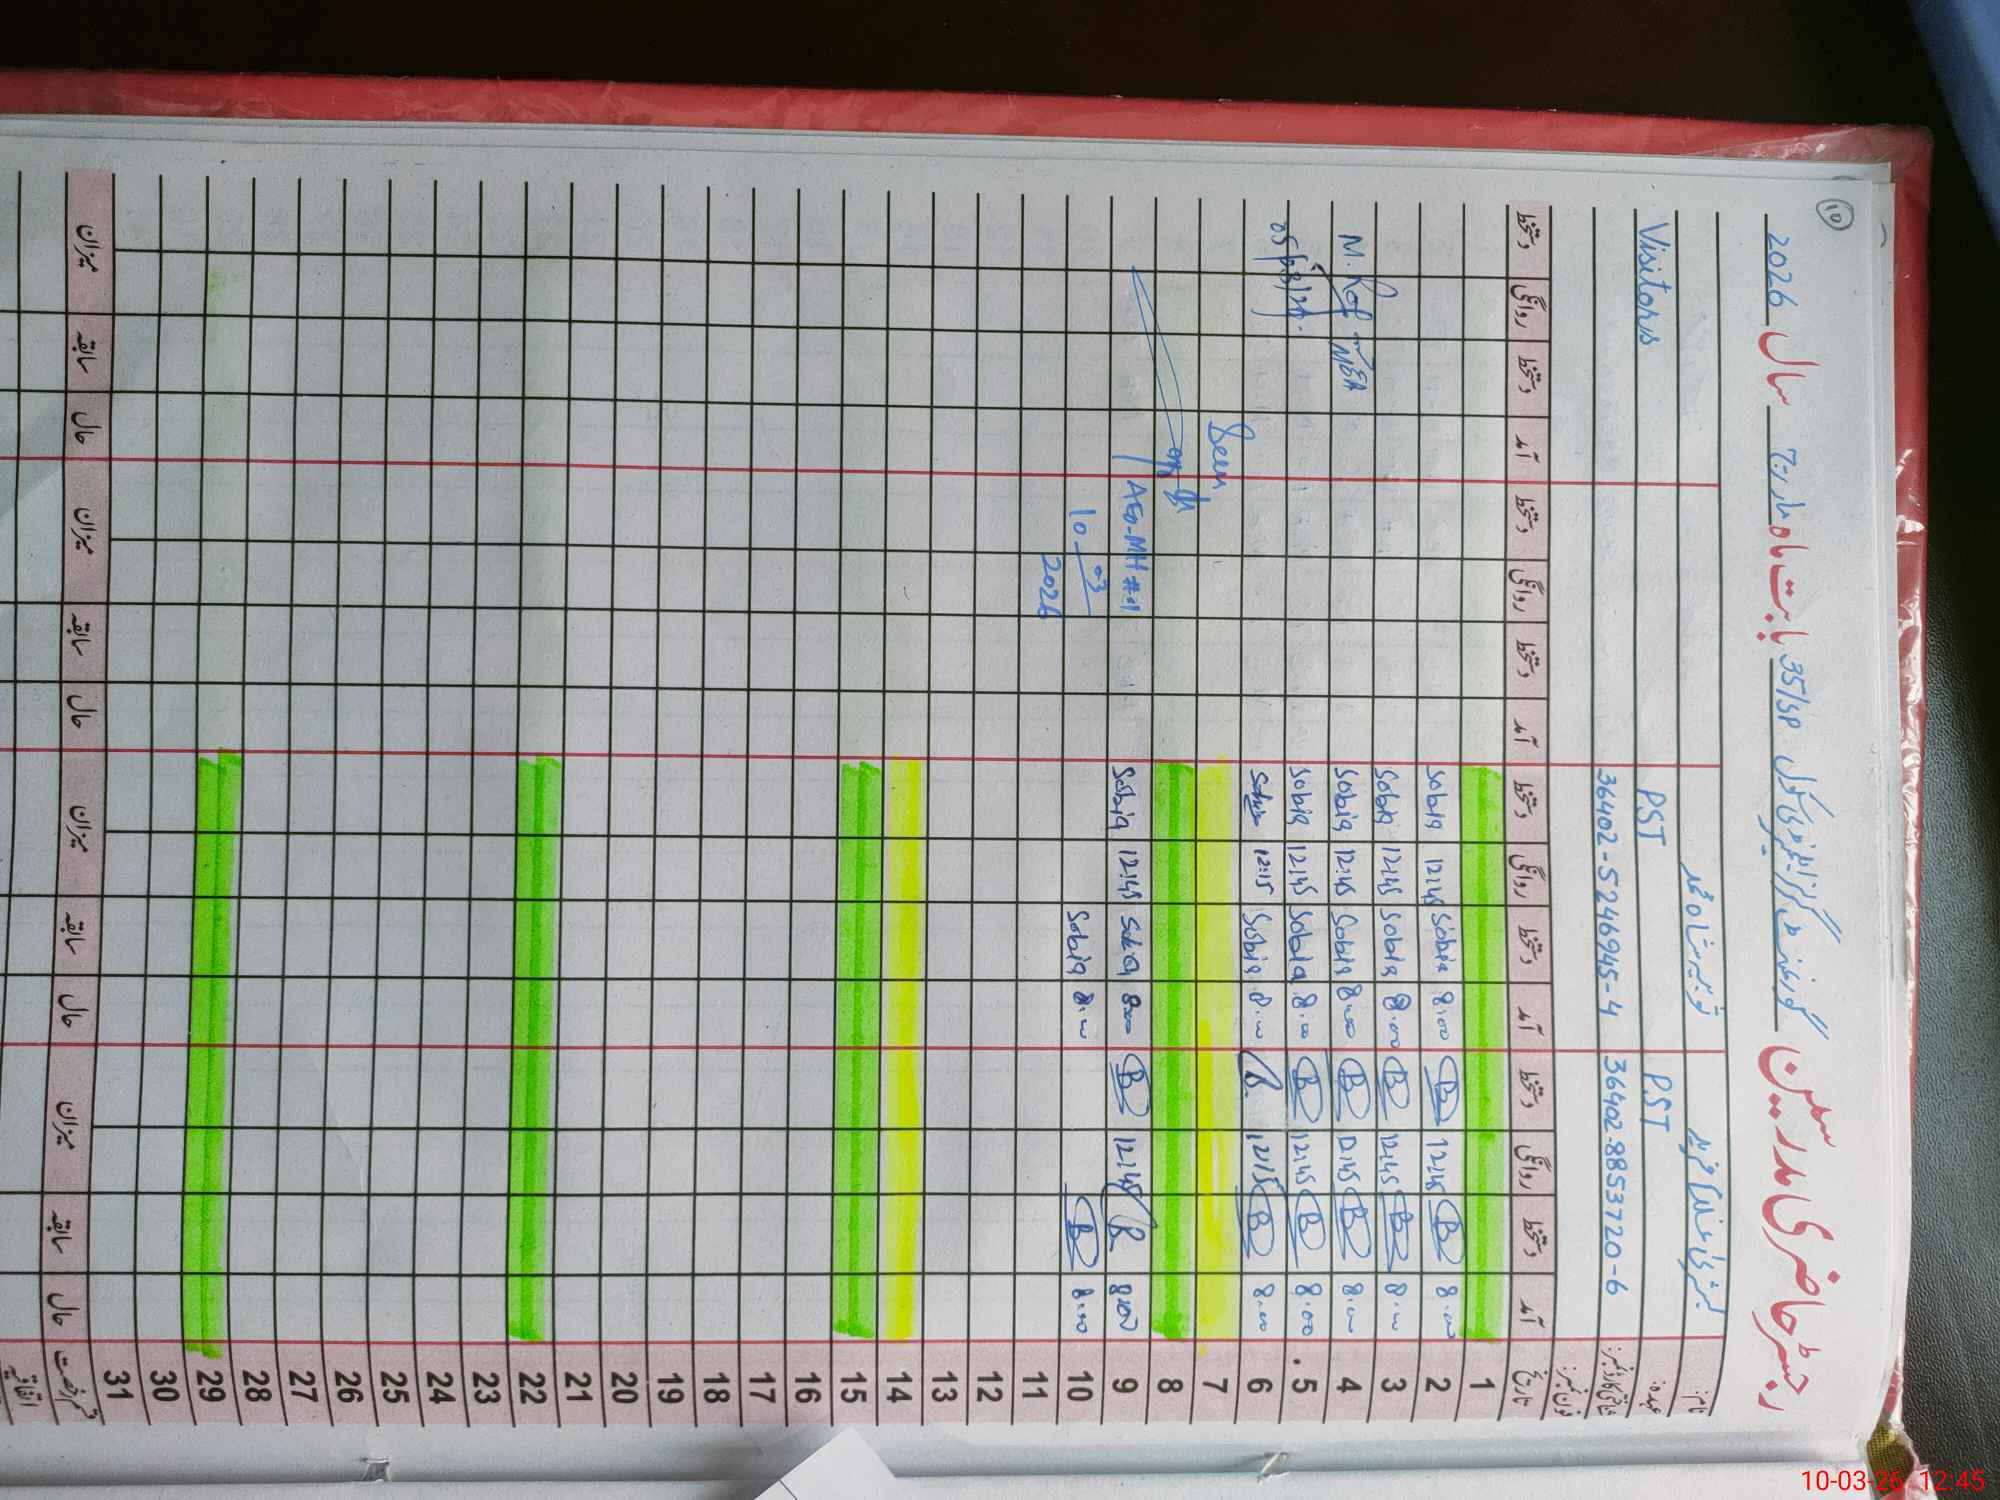 10
رجسٹر حاضری مدرسین گورنمنٹ گرلز ایلیمنٹری سکول 35/SP بابت ماہ مارچ سال 2026
نام:
عہدہ: PST PST Visitors
شناختی کارڈ نمبر: 36402-8853720-6 36402-5246945-4
فون نمبر:
تاریخ آمد دستخط روانگی دستخط آمد دستخط روانگی دستخط آمد دستخط روانگی دستخط آمد دستخط روانگی دستخط
1
2 8:00 B 12:45 B 8:00 Sobia 12:45 Sobia
3 8:00 B 12:45 B 8:00 Sobia 12:45 Sobia
4 8:00 B 12:45 B 8:00 Sobia 12:45 Sobia M. MEA
5 8:00 B 12:45 B 8:00 Sobia 12:45 Sobia 05/03/26
6 8:00 B 12:15 B 8:00 Sobia 12:15
7
8
9 8:00 B 12:45 B 8:00 Sobia 12:45 Sobia AEO-MH #01
10 8:00 B 8:00 Sobia 10 03
2026
11
12
13
14
15
16
17
18
19
20
21
22
23
24
25
26
27
28
29
30
31
قسم رخصت حال سابقہ میزان حال سابقہ میزان حال سابقہ میزان حال سابقہ میزان
اتفاقیہ
10-03-26 12:45